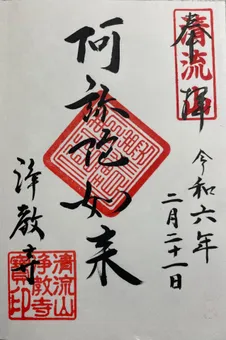 奉拝
清流山
令和六年
二月二十一日
阿弥陀如来
浄教寺
清流山
浄教寺
寳印